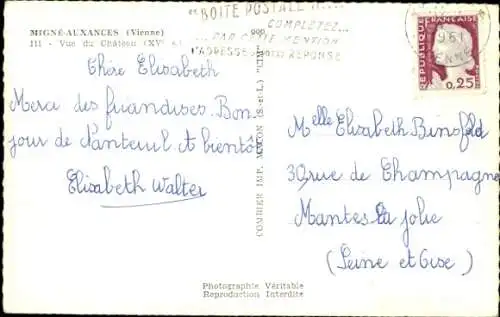 MIGNÉ-AUXANCES (Vienne)
III - Vue du Château (XVe s.)
"BOITE POSTALE N...
COMPLETEZ...
...PAR CETTE MENTION
L'ADRESSE POUR REPONSE
961
VIENNE
REPUBLIQUE FRANÇAISE
0,25
Chère Elisabeth
Merci des friandises. Bon-
jour de Nanteuil A bientôt
Elisabeth Walter
COMBIER IMP. MACON (S.-et-L.) "CIM"
Melle Elisabeth Binsfeld
39 rue de Champagne
Mantes la jolie
(Seine et Oise)
Photographie Véritable
Reproduction Interdite